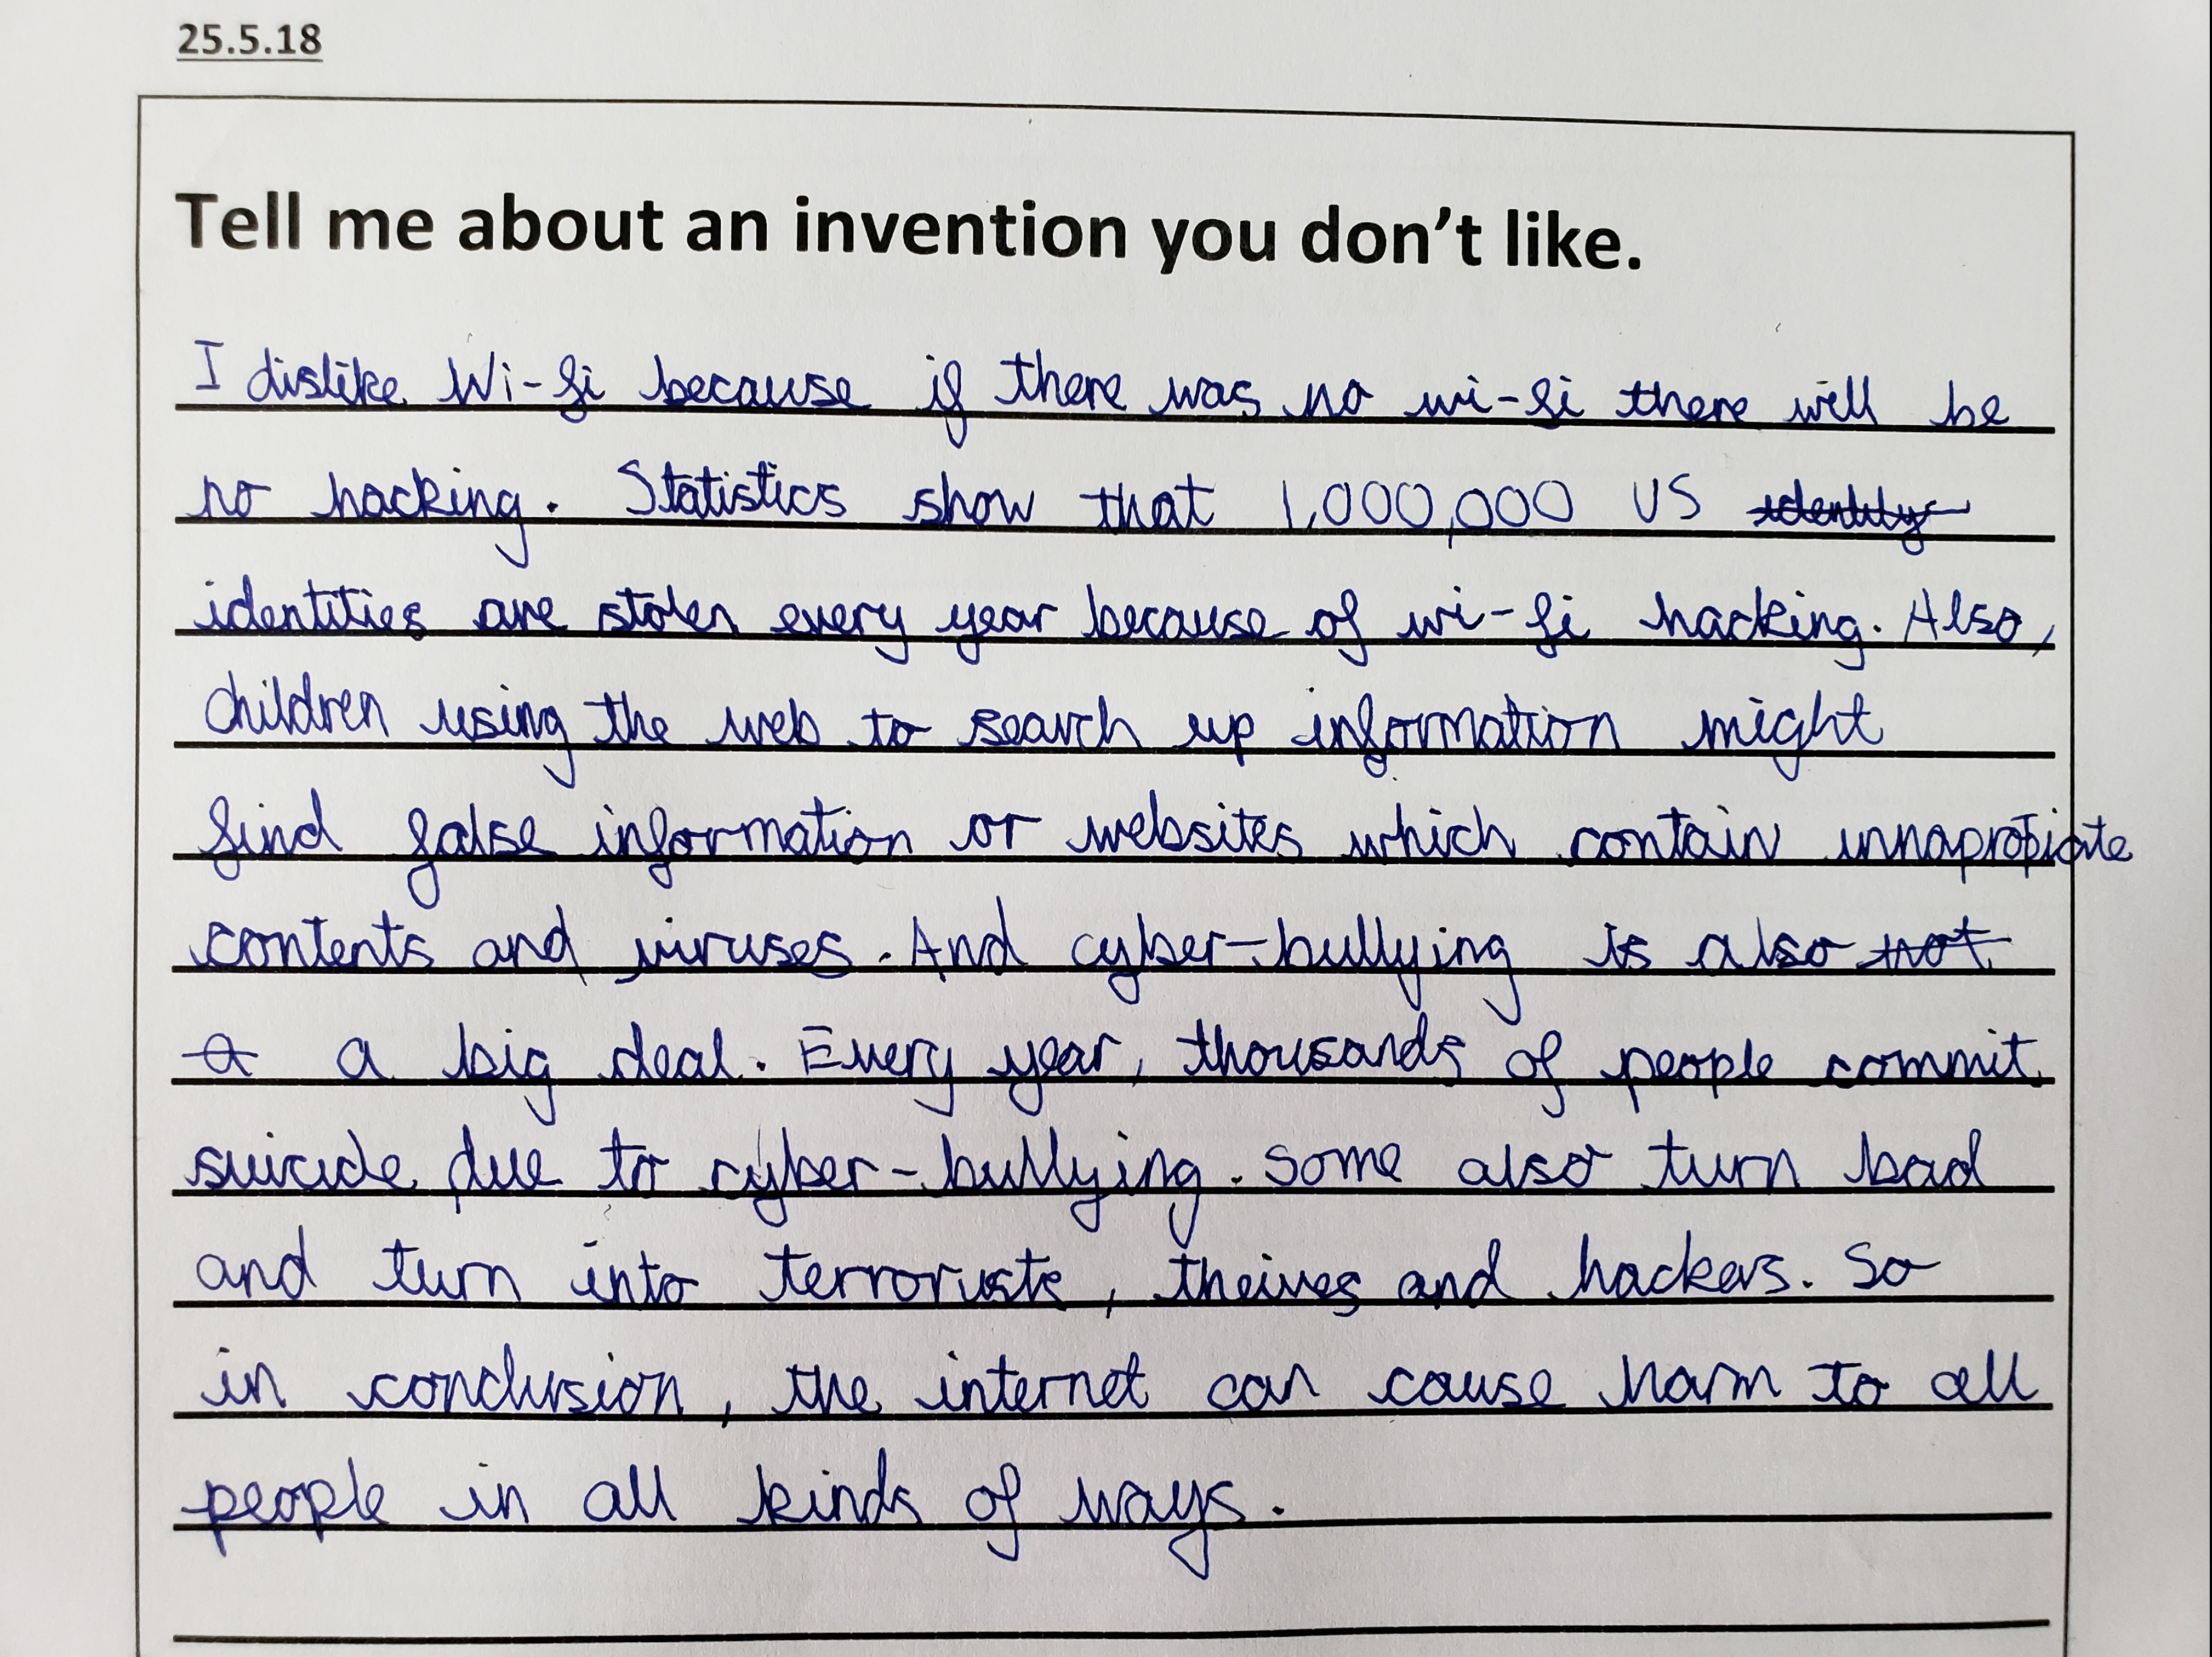 25.5.18
Tell me about an invention you don't like.
I dislike Wi-fi because if there was no wi-fi there will be
no hacking. Statistics show that 1,000,000 US identity
identities are stolen every year because of wi-fi hacking. Also,
children using the web to search up information might
find false information or websites which contain innapropiate
contents and viruses. And cyber-bullying is also not
a a big deal. Every year, thousands of people commit
suicide due to cyber-bullying. Some also turn bad
and turn into terrorists, theives and hackers. So
in conclusion, the internet can cause harm to all
people in all kinds of ways.